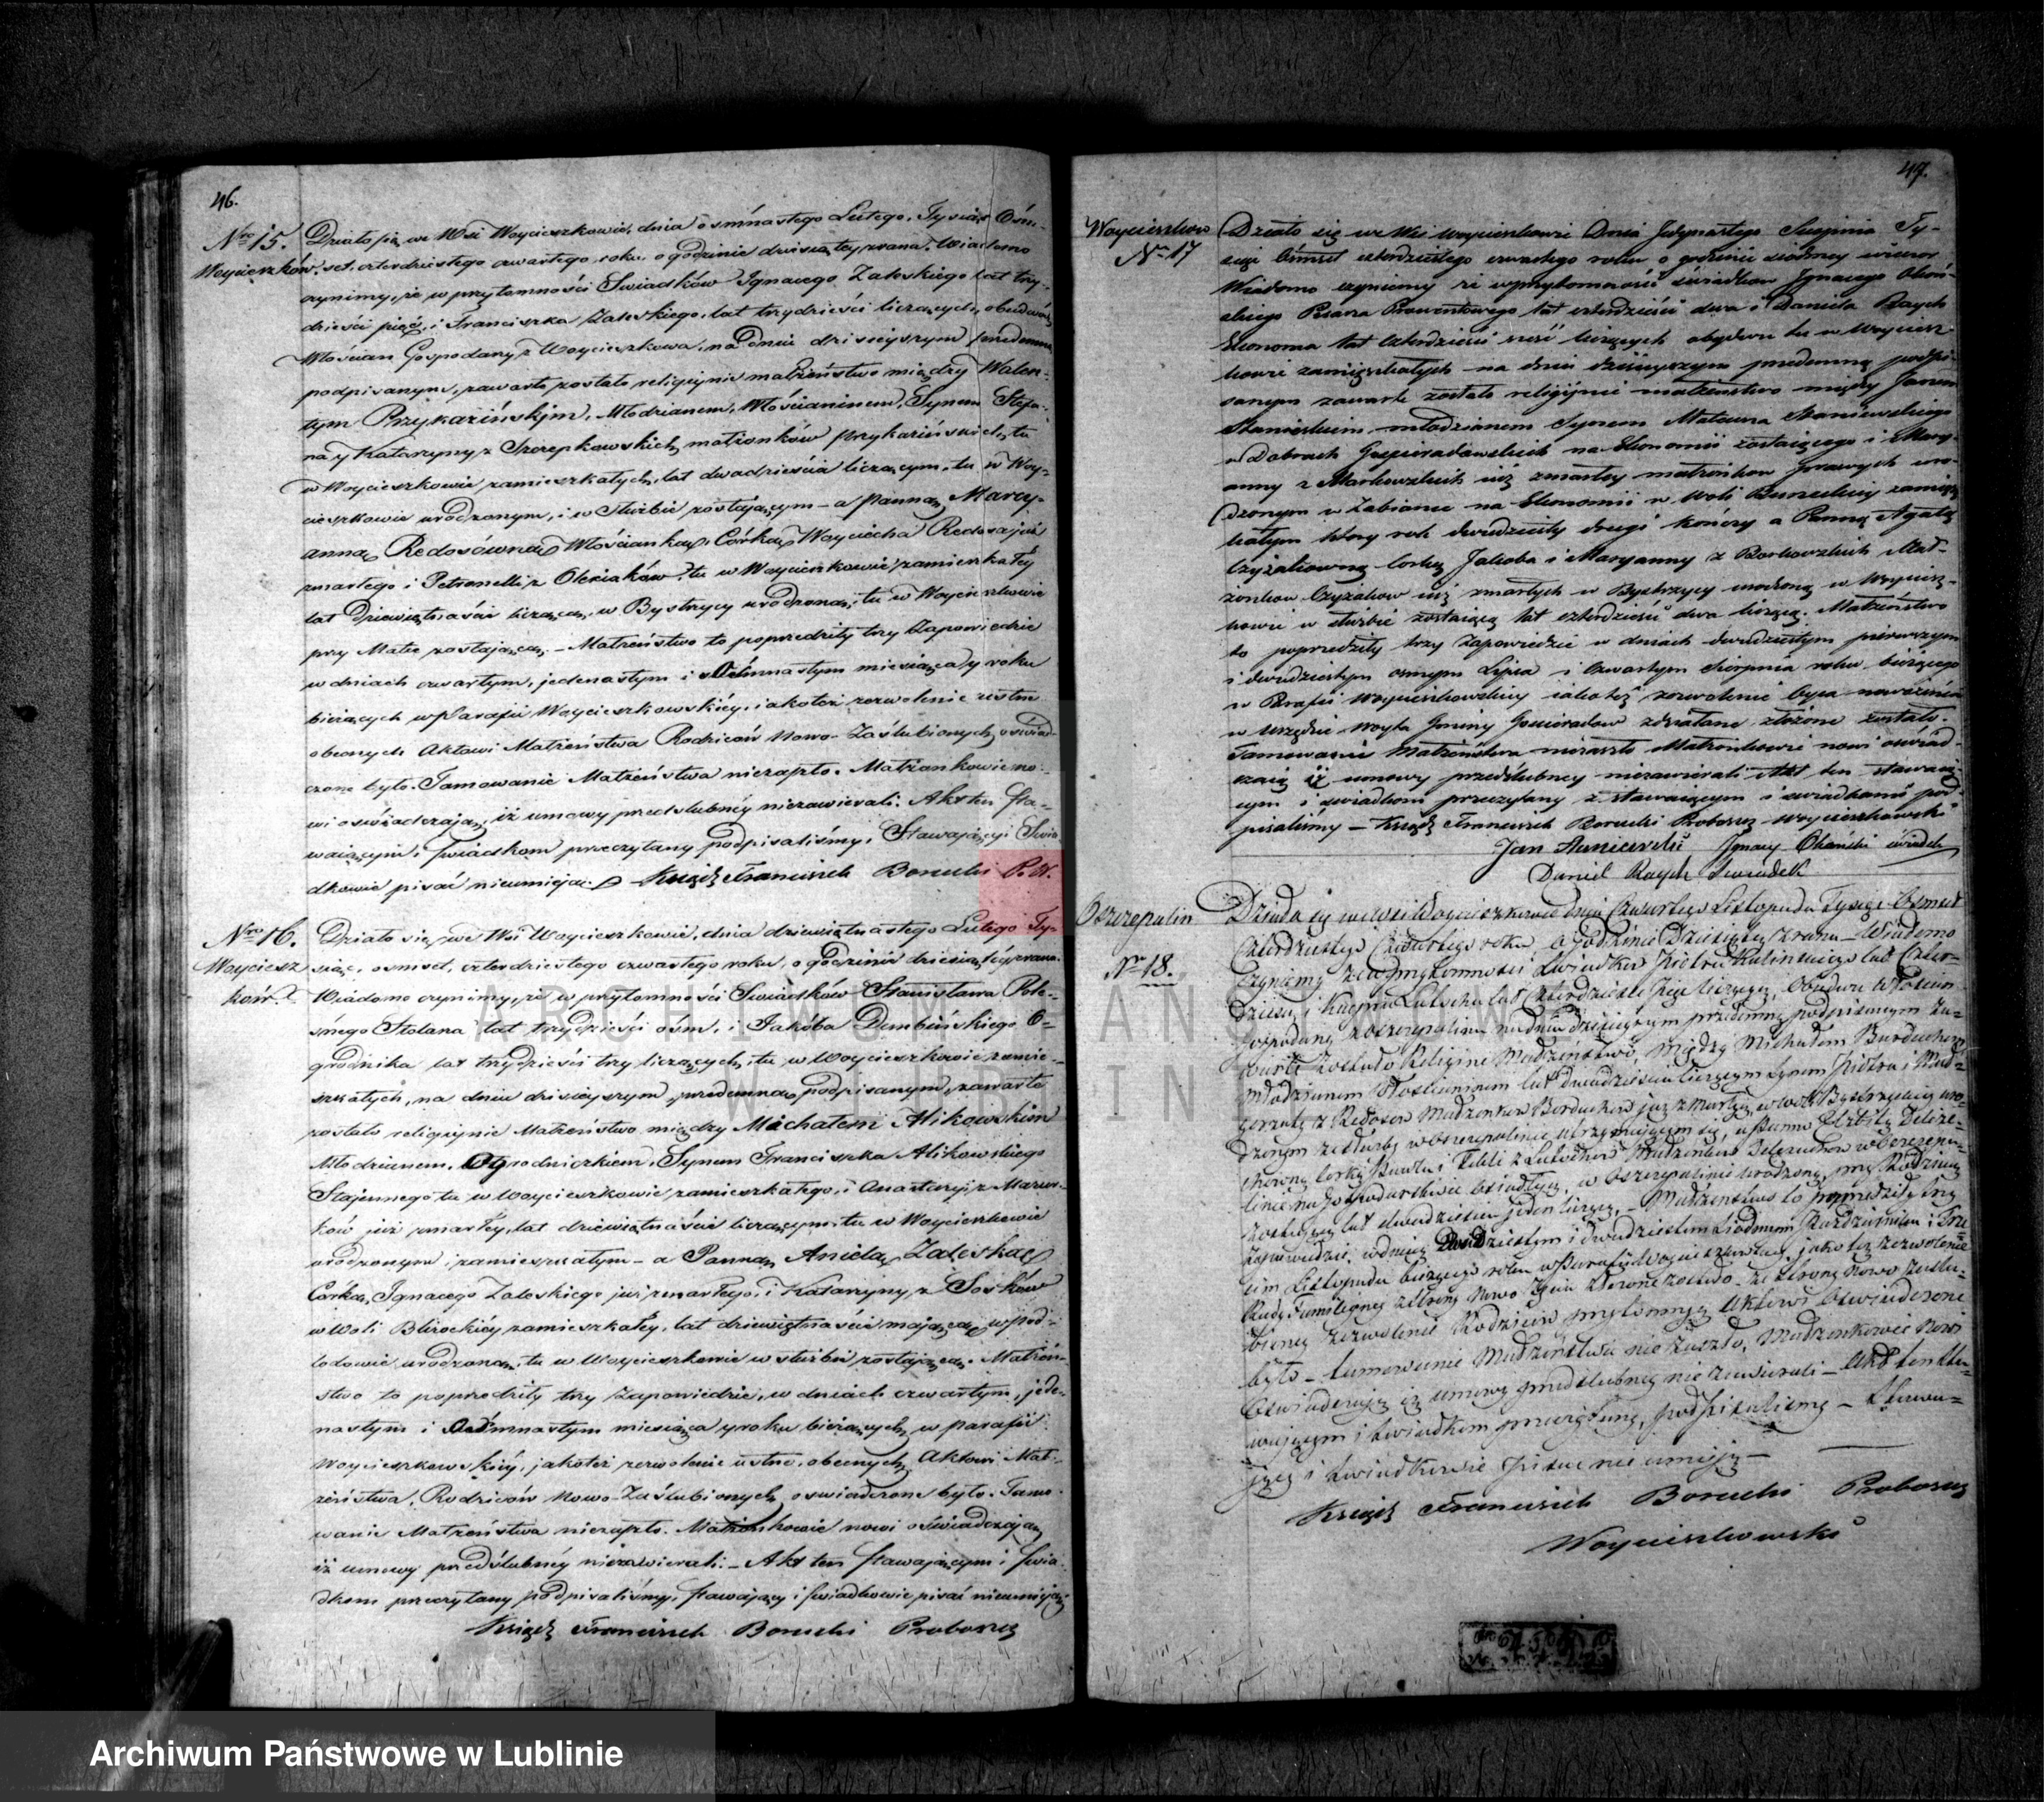 46.
Nro 15.
Woycieszków.
Działo się we Wsi Woycieszkowie, dnia osmnastego Lutego, Tysiąc Ośm-
set, czterdziestego czwartego roku, o godzinie dziesiątey zrana. Wiadomo
czynimy, że w przytomności Świadków Ignacego Zaleskiego lat trzy-
dzieści pięć, i Franciszka Zaleskiego, lat trzydzieści liczących, obudwóch
Włościan Gospodarzy z Woycieszkowa, na dniu dzisieyszym przedemną
podpisanym, zawarte zostało religiynie małżeństwo między Walen-
tym Przykazińskim, Młodzianem, Włościaninem, Synem Stefa-
na y Katarzyny z Szczepkowskich małżonków Przykazińskich, tu
w Woycieszkowie zamieszkałych, lat dwadzieścia liczącym, tu w Woy-
cieszkowie urodzonym, i w służbie zostającym – a Panną Mary-
anną Redosówną Włościanką, Córką Woyciecha Redosa już
zmarłego i Petronelli z Olesiaków, tu w Woycieszkowie zamieszkałey
lat dziewiętnaście liczącą, w Bystrzycy urodzoną, tu w Woycieszkowie
przy Matce zostającą. – Małżeństwo to poprzedziły trzy Zapowiedzie
w dniach czwartym, jedenastym i Ośmnastym miesiąca y roku
bieżących w Parafii Woycieszkowskiéy, jakoteż zezwolenie ustne
obecnych Aktowi Małżeństwa Rodziców Nowo-Zaślubionych oświad-
czone było. Tamowanie Małżeństwa niezaszło. Małżonkowie no-
wi oświadczają, iż umowy przedślubnéy niezawierali. Akt ten Sta-
waiącym i Świadkom przeczytany podpisaliśmy, Stawający i Świa-
dkowie pisać nieumieją. Ksiądz Franciszek Borucki P. W.
Nro 16.
Woyciesz
ków.
Działo się we Wsi Woycieszkowie, dnia dziewiętnastego Lutego Ty-
siąc, osmset, czterdziestego czwartego roku, o godzinie dziesiątéy zrana.
Wiadomo czynimy, że w przytomności Świadków Stanisława Role-
snego Stolarza lat trzydzieści ośm, i Jakóba Dembińskiego O-
grodnika lat trzydzieści trzy liczących, tu w Woycieszkowie zamie-
szkałych, na dniu dzisieyszym przedemną podpisanym, zawarte
zostało religiynie Małżeństwo między Michałem Alikowskim
Młodzianem, Ogrodniczkiem, Synem Franciszka Alikowskiego
Stajennego tu w Woycieszkowie zamieszkałego, i Anastazyi z Mazur-
ków już zmarłéy, lat dziewiętnaście liczącym, tu w Woycieszkowie
urodzonym i zamieszkałym – a Panną Anielą Zaleską
Córką Ignacego Zaleskiego już zmarłego, i Katarzyny z Sosków
w Woli Blizockiéy zamieszkałéy, lat dziewiętnaście mającą, w Pod-
lodowie urodzoną, tu w Woycieszkowie w służbie zostającą. Małżeń-
stwo to poprzedziły trzy Zapowiedzie, w dniach czwartym, jede-
nastym i Ośmnastym miesiąca y roku bieżących, w parafii
Woycieszkowskiéy, jakoteż zezwolenie ustne, obecnych Aktowi Mał-
żeństwa, Rodziców Nowo-Zaślubionych, oświadczone było. Tamo-
wanie Małżeństwa niezaszło. Małżonkowie nowi oświadczają
iż umowy przedślubnéy niezawierali. – Akt ten Stawającym i Świa-
dkom przeczytany podpisaliśmy, Stawający i Świadkowie pisać nieumieją
Ksiądz Franciszek Borucki Proboszcz
47.
Woycieszków
Nro 17
Działo się we Wsi Woycieszkowie Dnia Jedynastego Sierpnia Ty-
siąc Ośmset czterdziestego czwartego roku o godzinie siódmey wieczór
Wiadomo czyniemy że w przytomności świadków Ignacego Okoń-
skiego Pisarza Prowentowego lat czterdzieści dwa i Daniela Raych
Ekonoma lat czterdzieści sześć liczących obydwu tu w Woyciesz-
kowie zamieszkałych na dniu dzisieyszym przedemną podpi-
sanym zawarte zostało religiynie małżeństwo między Janem
młodzianem Synem Mateusza
w Dobrach na Ekonomii zostaiącego i Mary-
anny z Markowskich już zmarłey małżonków prawych uro-
dzonym w Zabiance na Ekonomii w Woli Burzeckiey zamiesz-
kałym który rok dwudziesty drugi kończy a Panną Agatą
Czyżakowną Córką Jakoba i Maryanny z Borkowskich Mał-
żonków Czyżaków już zmarłych w Bystrzycy urodzoną w Woyciesz-
kowie w służbie zostaiącą lat czterdzieści dwa liczącą. Małżeństwo
to poprzedziły trzy Zapowiedzie w dniach dwudziestym pierwszym
i dwudziestym osmym Lipca i czwartym Sierpnia roku bieżącego
w Parafii Woycieszkowskiey iakoteż zezwolenie Oyca nowożeńca
w Urzędzie Woyta Gminy Gościeradow zdziałane złożone zostało.
Tamowanie Małżeństwa niezaszło Małżonkowie nowi oświad-
czaią iż umowy przedślubney niezawierali Akt ten stawaią-
cym i świadkom przeczytany z stawaiącym i świadkami pod-
pisaliśmy – Ksiądz Franciszek Borucki Proboszcz Woycieszkowski
Jan Ignacy Okoński świadek
Daniel Raych Swiadek
Oszczepalin
Nro 18.
Działo się we wsi Woycieszkowie dnia Czwartego Listopada Tysiąc Osmset
Czterdziestego Czwartego roku o godzinie Dziesiątey zrana – Wiadomo
Czyniemy że w przytomności Swiadków Piotra Kalinskiego lat Czter-
dzieści, i Kacpra Lutocha lat Czterdzieści pięć liczących, Obudwu Włościan
Gospodarzy z Oszczepalina na dniu dzisieyszym przedemną podpisanym za-
warte zostało Religine Małżeństwo, między Michałem Burduchem
Młodzianem Włościaninem lat dwadzieścia liczącym Synem Piotra i Mał-
gorzaty z Redosow Małżonków Burduchów już zmarłych, w Woli Bystrzyckiey uro-
dzonym ze służby w Oszczepalinie utrzymującym się, a Panną Elzbietą
córką Pawła i Tekli z Lutochow Małżonków w Oszczepa-
linie na Gospodarstwie osiadłych, w Oszczepalinie urodzoną, przy Rodzicach
zostającą lat dwadzieścia jeden liczącą. – Małżeństwo to poprzedziły trzy
Zapowiedzie, w dniach Dwudziestym i dwudziestym siódmym Października i Trze-
cim Listopada bieżącego roku w Parafii Woycieszkowskiey, jako też zezwolenie
Rady Familijney ze strony Nowo złożone zostało. ze strony nowo zaślu-
bioney zezwolenie Rodziców przytomnych Aktowi Oświadczone
było – tamowanie Małżeństwa nie zaszło, Małżonkowie nowi
Oświadczają iż umowy przedślubney nie zawierali – Akt ten Sta-
wającym i świadkom przeczytany, podpisaliśmy – Stawa-
jący i świadkowie pisać nie umieją –
Ksiądz Franciszek Borucki Proboszcz
Woycieszkowski
ARCHIWUM PAŃSTWOWE
W LUBLINIE
Archiwum Państwowe w Lublinie